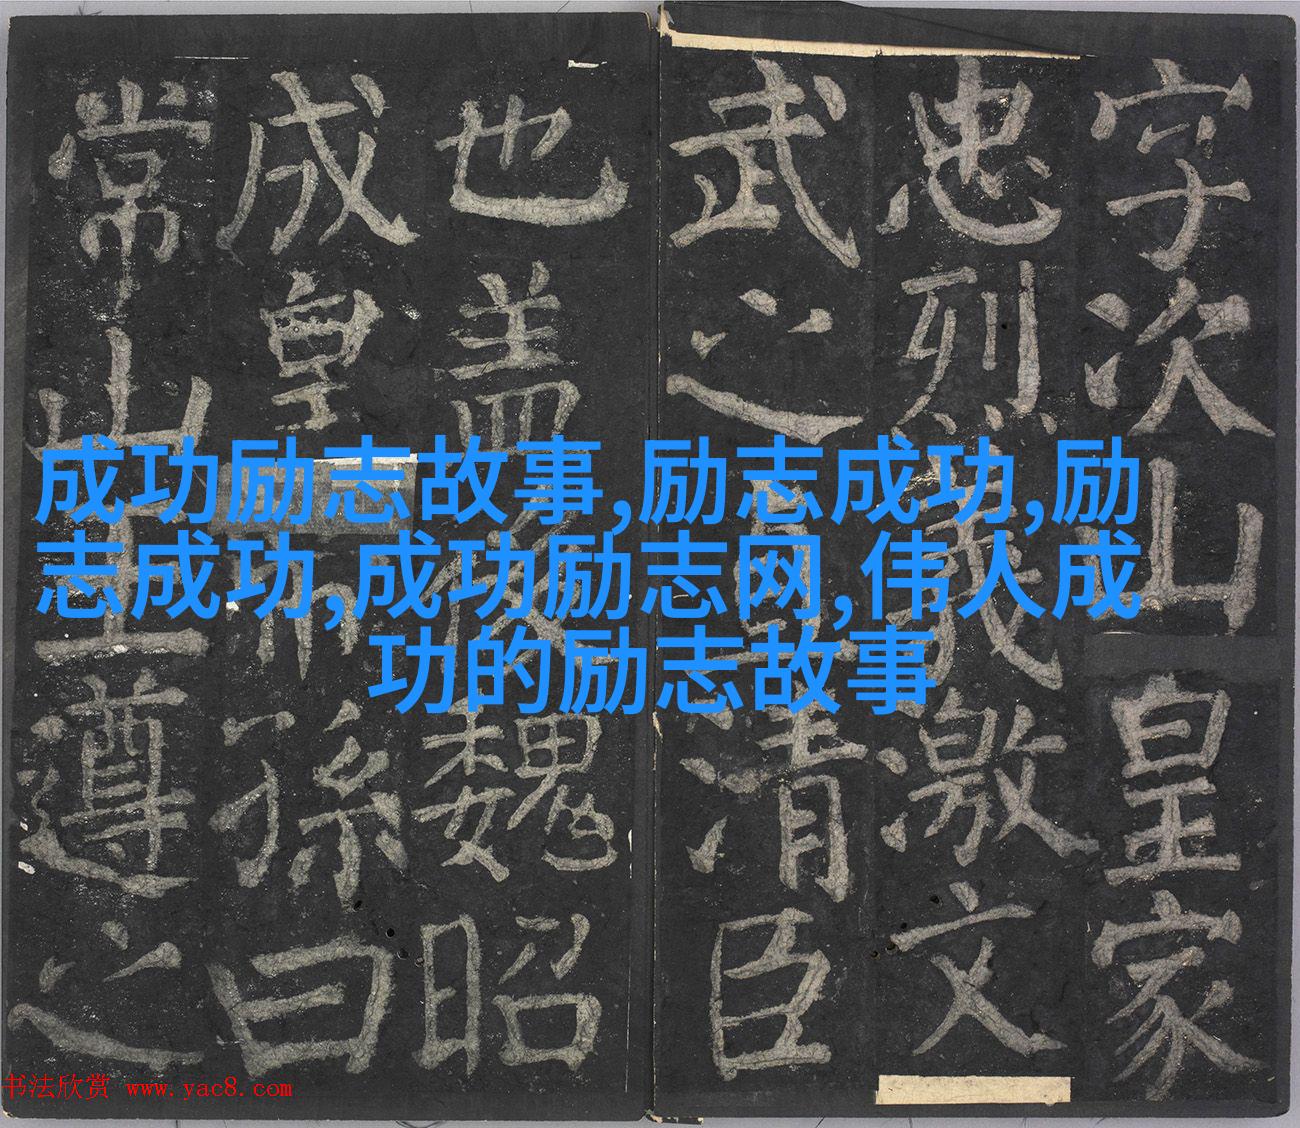 成功励志故事,励志成功,励
志成功,成功励志网,伟人成
功的励志故事
字次山皇家
忠烈義激文
武之直清臣
也盖後魏昭
成皇帝孫曰
常山王遵之
书法欣赏 www.yac8.com